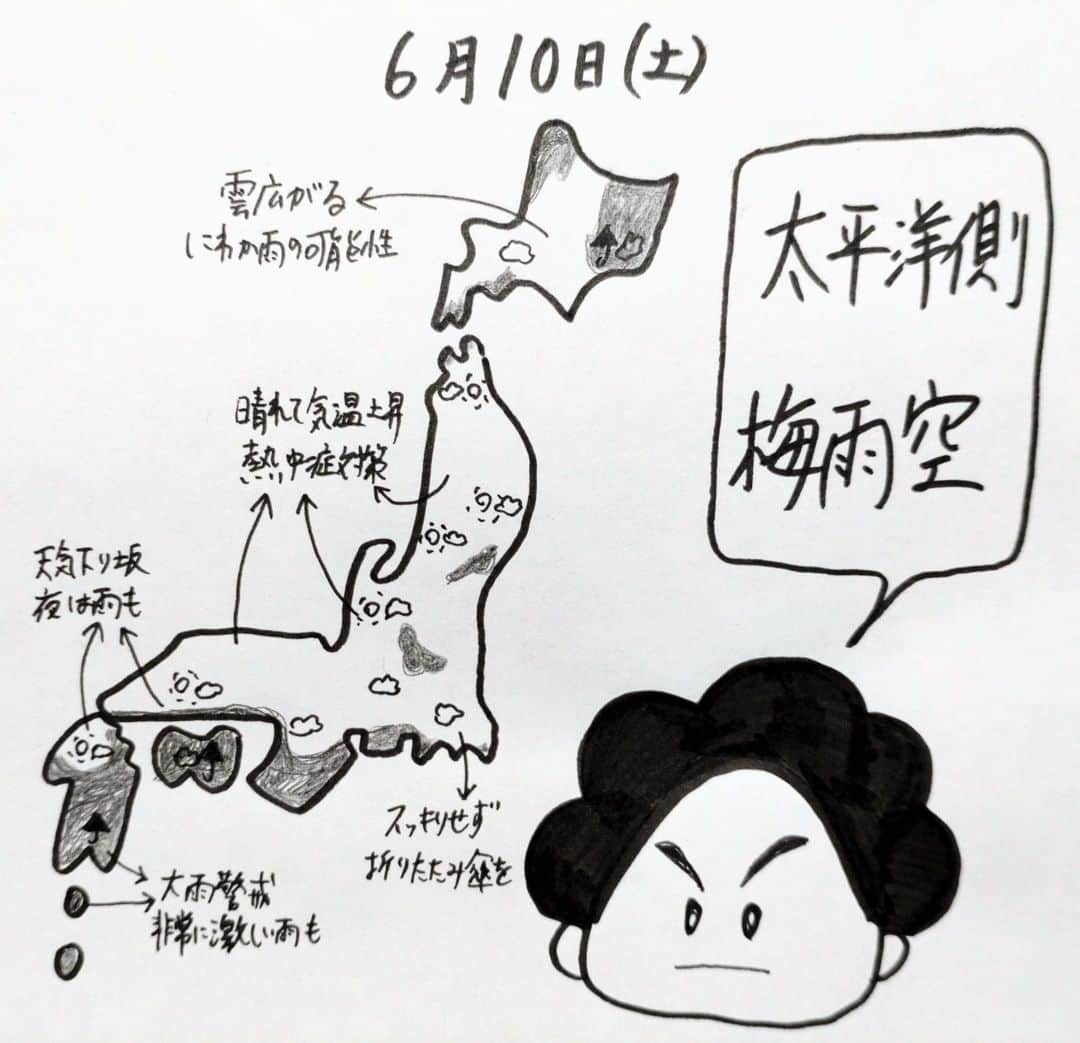 6月10日(土)
雲広がる
にわか雨の可能性
太平洋側
梅雨空
晴れて気温上昇
熱中症対策
天気下り坂
夜は雨も
スッキリせず
折りたたみ傘を
大雨警戒
非常に激しい雨も